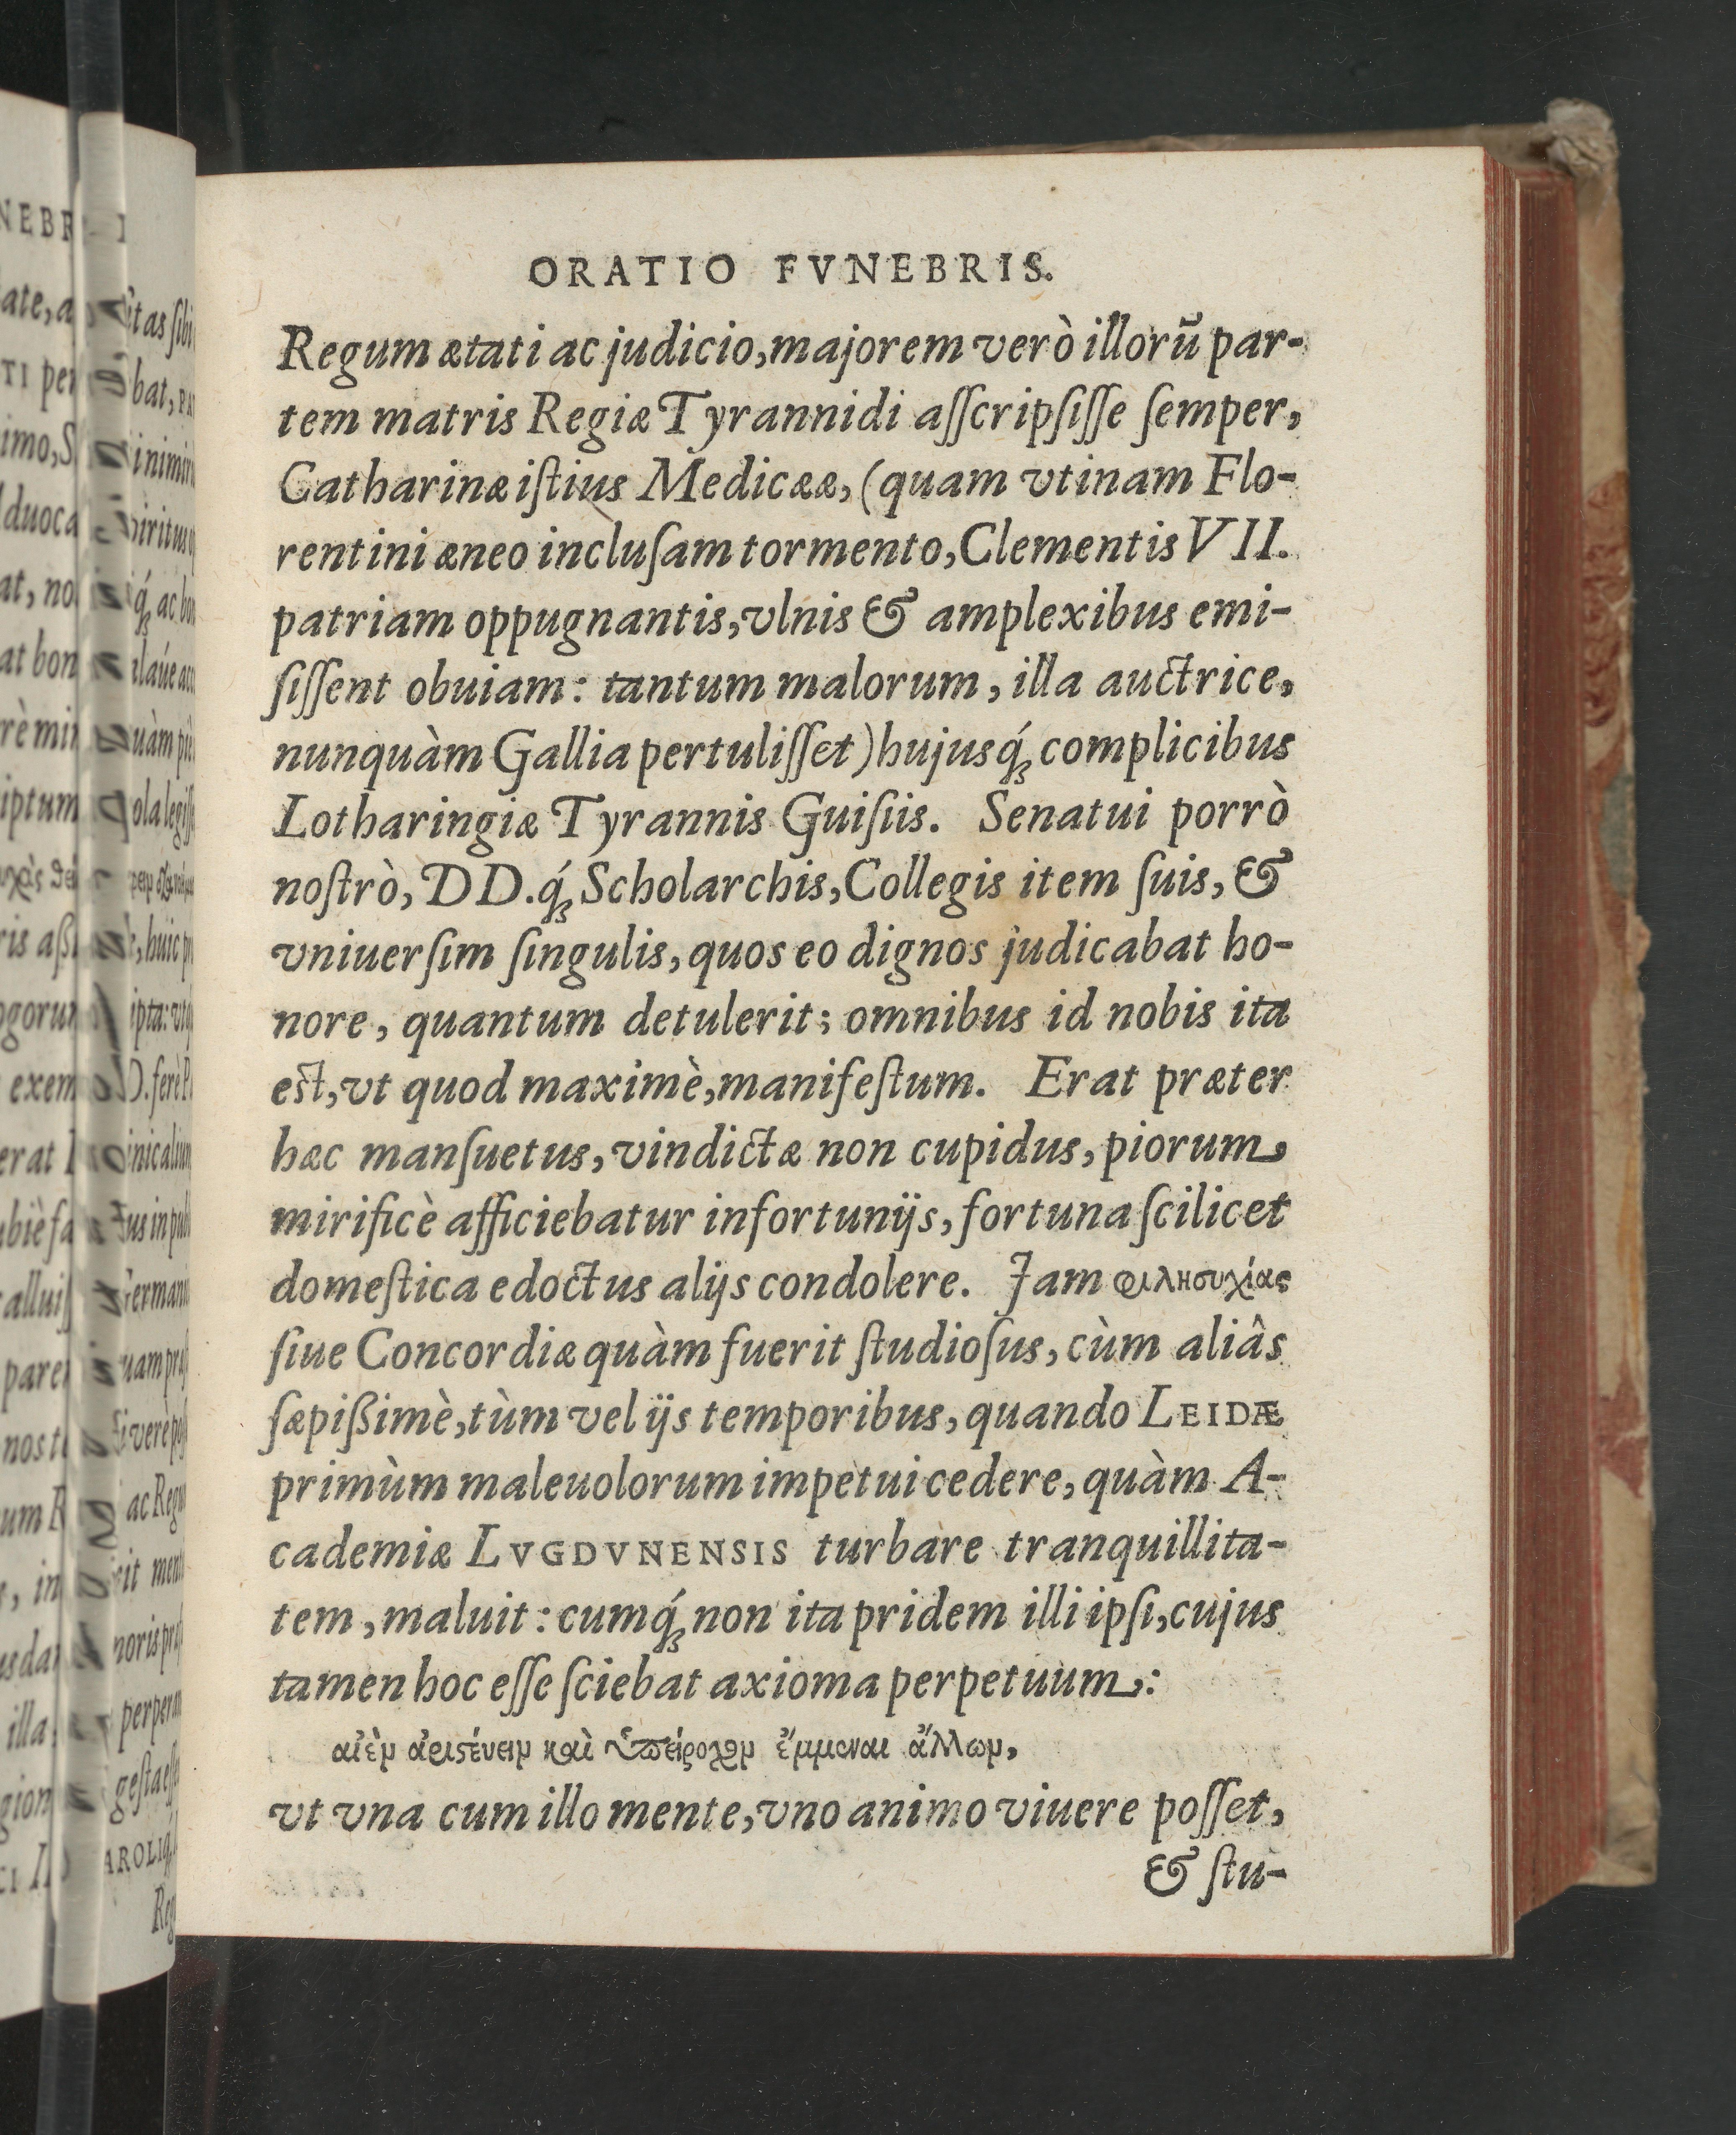 ORATIO FVNEBRIS.
Regum ætati ac judicio, majorem verò illorū par-
tem matris Regiæ Tyrannidi aſſcripſiſſe ſemper,
Catharinæ iſtius Medicææ, (quam vtinam Flo-
rentini æneo incluſam tormento, Clementis VII.
patriam oppugnantis, vlnis & amplexibus emi-
ſiſſent obuiam: tantum malorum, illa auctrice,
nunquàm Gallia pertuliſſet) hujusq́ꝫ complicibus
Lotharingiæ Tyrannis Guiſiis. Senatui porrò
noſtrò, DD.q́ꝫ Scholarchis, Collegis item ſuis, &
vniuerſim ſingulis, quos eo dignos judicabat ho-
nore, quantum detulerit; omnibus id nobis ita
est, vt quod maximè, manifeſtum. Erat præter
hæc manſuetus, vindictæ non cupidus, piorum
mirificè afficiebatur infortunijs, fortuna ſcilicet
domeſtica edoctus alijs condolere. Jam φιλησυχίας
ſiue Concordiæ quàm fuerit ſtudioſus, cùm aliâs
ſæpißimè, tùm vel ijs temporibus, quando LEIDÆ
primùm maleuolorum impetui cedere, quàm A-
cademiæ LVGDVNENSIS turbare tranquillita-
tem, maluit: cumq́ꝫ non ita pridem illi ipſi, cujus
tamen hoc eſſe ſciebat axioma perpetuum:
αἰὲν ἀριστεύειν καὶ ὑπείροχον ἔμμεναι ἄλλων,
vt vna cum illo mente, vno animo viuere poſſet,
& ſtu-